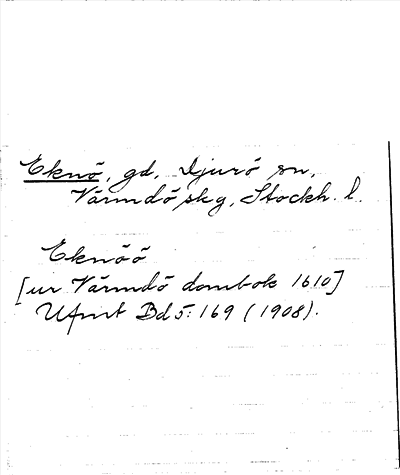 Eknö, gd, Djurö sn,
Värmdö skg, Stockh. l.
Eknöö
[ur Värmdö dombok 1610]
UFmt Bd 5: 169 (1908).